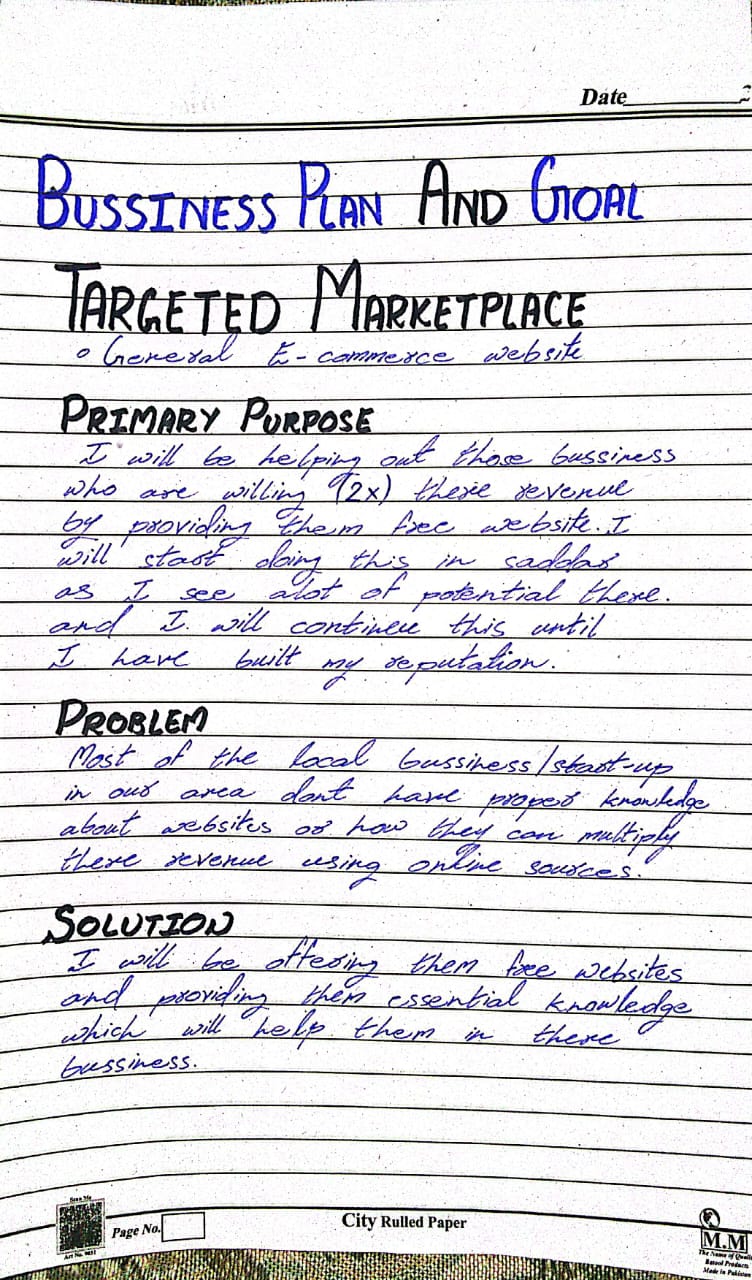 Date 2
BUSSINESS PLAN AND GOAL
TARGETED MARKETPLACE
General E-commerce website
PRIMARY PURPOSE
I will be helping out those bussiness
who are willing (2x) there revenue
by providing them free website. I
will start doing this in saddar
as I see alot of potential there.
and I. will continue this until
I have built my reputation.
PROBLEM
Most of the local bussiness/start-up
in our area dont have proper knowledge
about websites or how they can multiply
there revenue using online sources.
SOLUTION
I will be offering them free websites
and providing them essential knowledge
which will help them in there
bussiness.
Scan Me
Art No. 9031
Page No.
City Rulled Paper
M.M
The Name of Quality
Rasool Products
Made in Pakistan